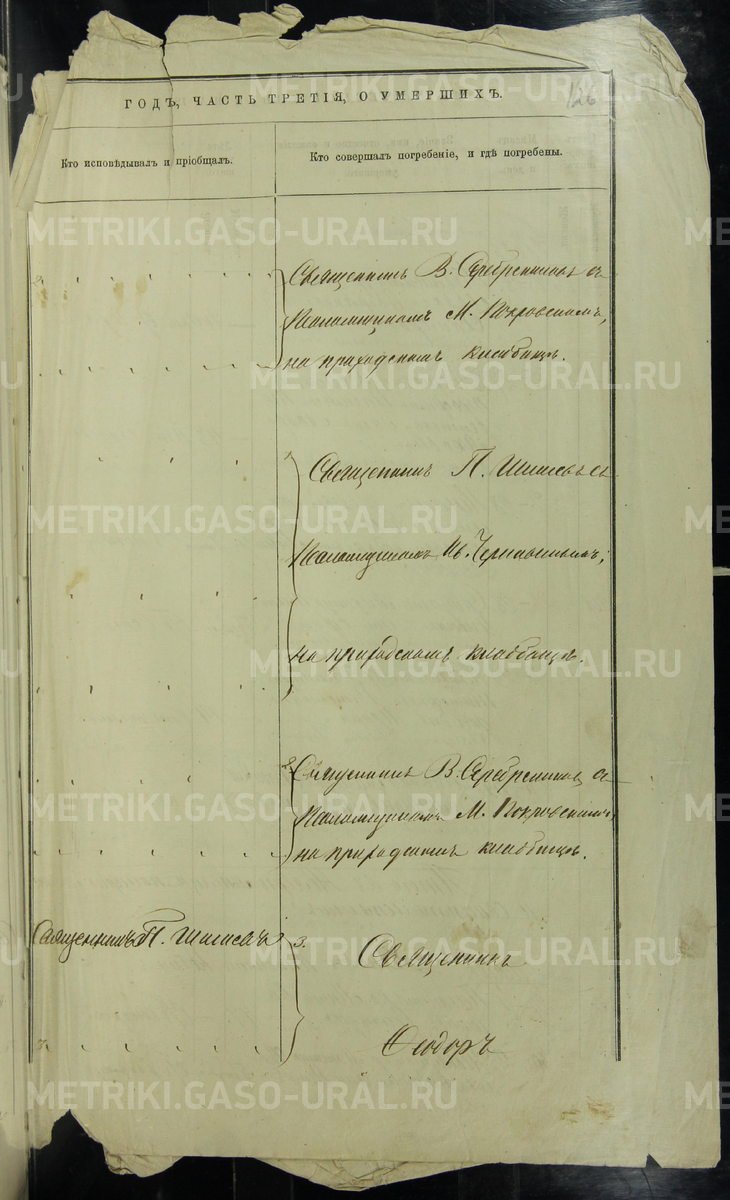 126
ГОДЪ, ЧАСТЬ ТРЕТІЯ, О УМЕРШИХЪ.
Кто исповѣдывалъ и пріобщалъ.
Кто совершалъ погребеніе, и гдѣ погребены.
Священникъ В. Серебренниковъ съ
Псаломщикомъ М. Покровскимъ,
на приходскомъ кладбищѣ.
Священникъ П. Шишевъ съ
Псаломщикомъ Ив. Чернавинымъ,
на приходскомъ кладбищѣ.
Священникъ В. Серебренниковъ съ
Псаломщикомъ М. Покровскимъ
на приходскомъ кладбищѣ.
Священникъ П. Шишевъ
3.
Священникъ
Ѳеодоръ
METRIKI.GASO-URAL.RU